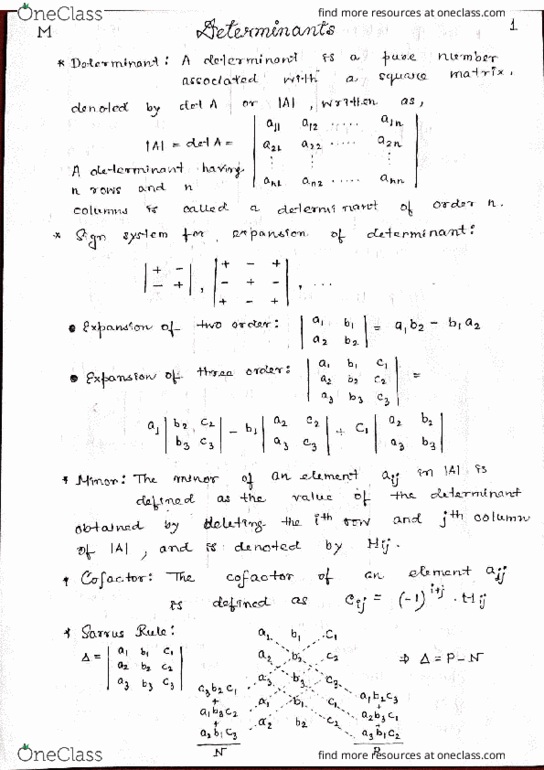 OneClass
find more resources at oneclass.com
M Determinants 1
* Determinant: A determinant is a pure number
associated with a square matrix.
denoted by det A or |A|, written as,
|A| = det A = | a11 a12 ..... a1n |
| a21 a22 ..... a2n |
| ⋮ ⋮ ⋮ |
| an1 an2 ..... ann |
A determinant having
n rows and n
columns is called a determinant of order n.
* Sign system for expansion of determinant:
| + - | , | + - + | , ...
| - + | | - + - |
| + - + |
• Expansion of two order: | a1 b1 | = a1b2 - b1a2
| a2 b2 |
• Expansion of three order: | a1 b1 c1 | =
| a2 b2 c2 |
| a3 b3 c3 |
a1 | b2 c2 | - b1 | a2 c2 | + c1 | a2 b2 |
| b3 c3 | | a3 c3 | | a3 b3 |
* Minor: The minor of an element aij in |A| is
defined as the value of the determinant
obtained by deleting the ith row and jth column
of |A|, and is denoted by Mij.
* Cofactor: The cofactor of an element aij
is defined as Cij = (-1)^i+j . Mij
* Sarrus Rule:
Δ = | a1 b1 c1 |
| a2 b2 c2 |
| a3 b3 c3 |
a1 b1 c1
a2 b2 c2
a3 b3 c3
a1 b1 c1
a2 b2 c2
⇒ Δ = P - N
a3b2c1
+
a1b3c2
+
a2b1c3
N
a1b2c3
+
a2b3c1
+
a3b1c2
P
OneClass
find more resources at oneclass.com